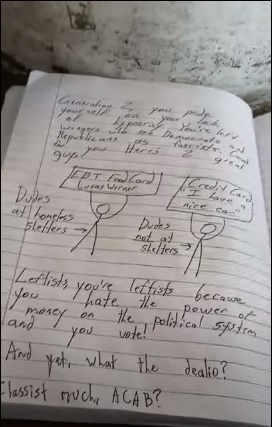 Generation Z, you pride
yourself on your lack
of hypocrisy. You're left
wingers with the Democrats and
Republicans as fascists.
you. Here's 2 great
guys
EDI Food Card
Lucas Werner
"Credit Card
I have
nice car"
Dudes
at homeless
shelters →
Dudes
not at
shelters →
Leftists, you're leftists because
you hate the power of
money on the political system
and you vote!
And yet, what the dealio?
Classist much, ACAB?